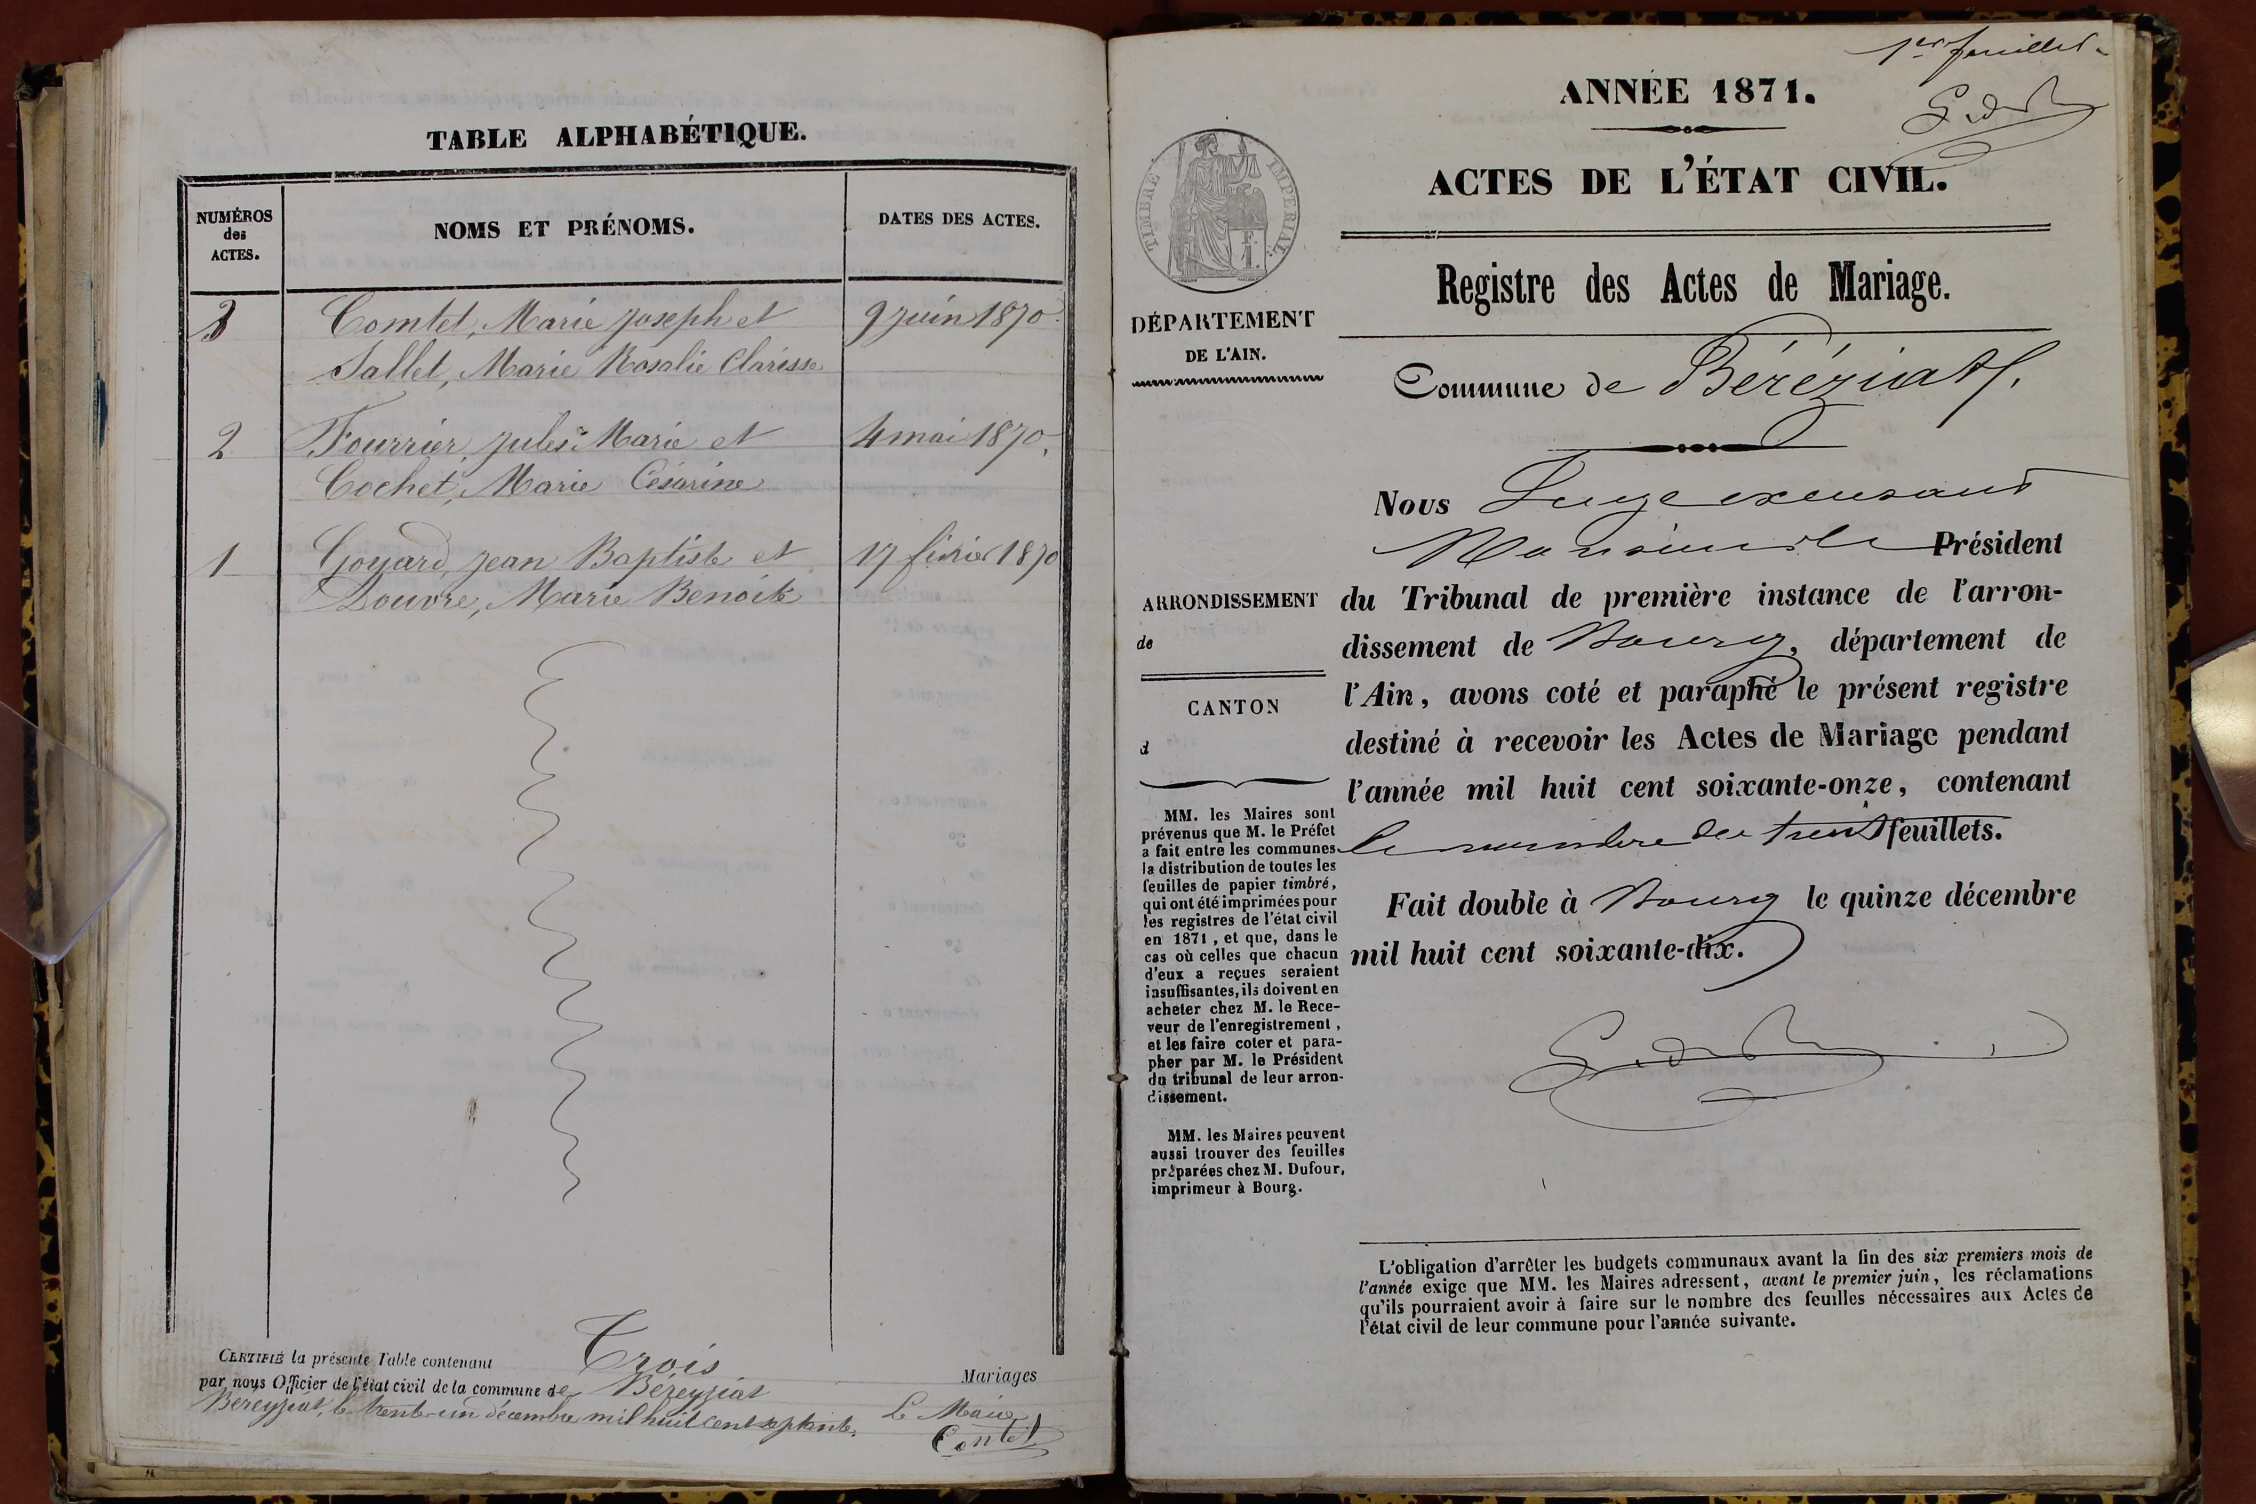 TABLE ALPHABÉTIQUE.
NUMÉROS
des
ACTES.
NOMS ET PRÉNOMS.
DATES DES ACTES.
3 Comtet, Marie Joseph et 9 juin 1870.
Sallet, Marie Rosalie Clarisse
2 Fourrier, Jules Marie et 4 mai 1870.
Cochet, Marie Césarine
1 Goyard, Jean Baptiste et 17 février 1870
Louvre, Marie Benoite
CERTIFIÉ la présente Table contenant Trois Mariages
par nous Officier de l'état civil de la commune de Béreyziat
Béreyziat, le trente-un décembre mil huit cent septante.
Le Maire
Contet
1er feuillet
ANNÉE 1871.
ACTES DE L'ÉTAT CIVIL.
TIMBRE IMPÉRIAL
1 F.
Registre des Actes de Mariage.
DÉPARTEMENT
DE L'AIN.
Commune de Béréziat.
Nous Juge
Président
du Tribunal de première instance de l'arron-
dissement de Bourg, département de
l'Ain, avons coté et paraphé le présent registre
destiné à recevoir les Actes de Mariage pendant
l'année mil huit cent soixante-onze, contenant
le nombre de feuillets.
Fait double à Bourg le quinze décembre
mil huit cent soixante-dix.
ARRONDISSEMENT
de
CANTON
d
MM. les Maires sont
prévenus que M. le Préfet
a fait entre les communes
la distribution de toutes les
feuilles de papier timbré,
qui ont été imprimées pour
les registres de l'état civil
en 1871, et que, dans le
cas où celles que chacun
d'eux a reçues seraient
insuffisantes, ils doivent en
acheter chez M. le Rece-
veur de l'enregistrement,
et les faire coter et para-
pher par M. le Président
du tribunal de leur arron-
dissement.
MM. les Maires peuvent
aussi trouver des feuilles
préparées chez M. Dufour,
imprimeur à Bourg.
L'obligation d'arrêter les budgets communaux avant la fin des six premiers mois de
l'année exige que MM. les Maires adressent, avant le premier juin, les réclamations
qu'ils pourraient avoir à faire sur le nombre des feuilles nécessaires aux Actes de
l'état civil de leur commune pour l'année suivante.